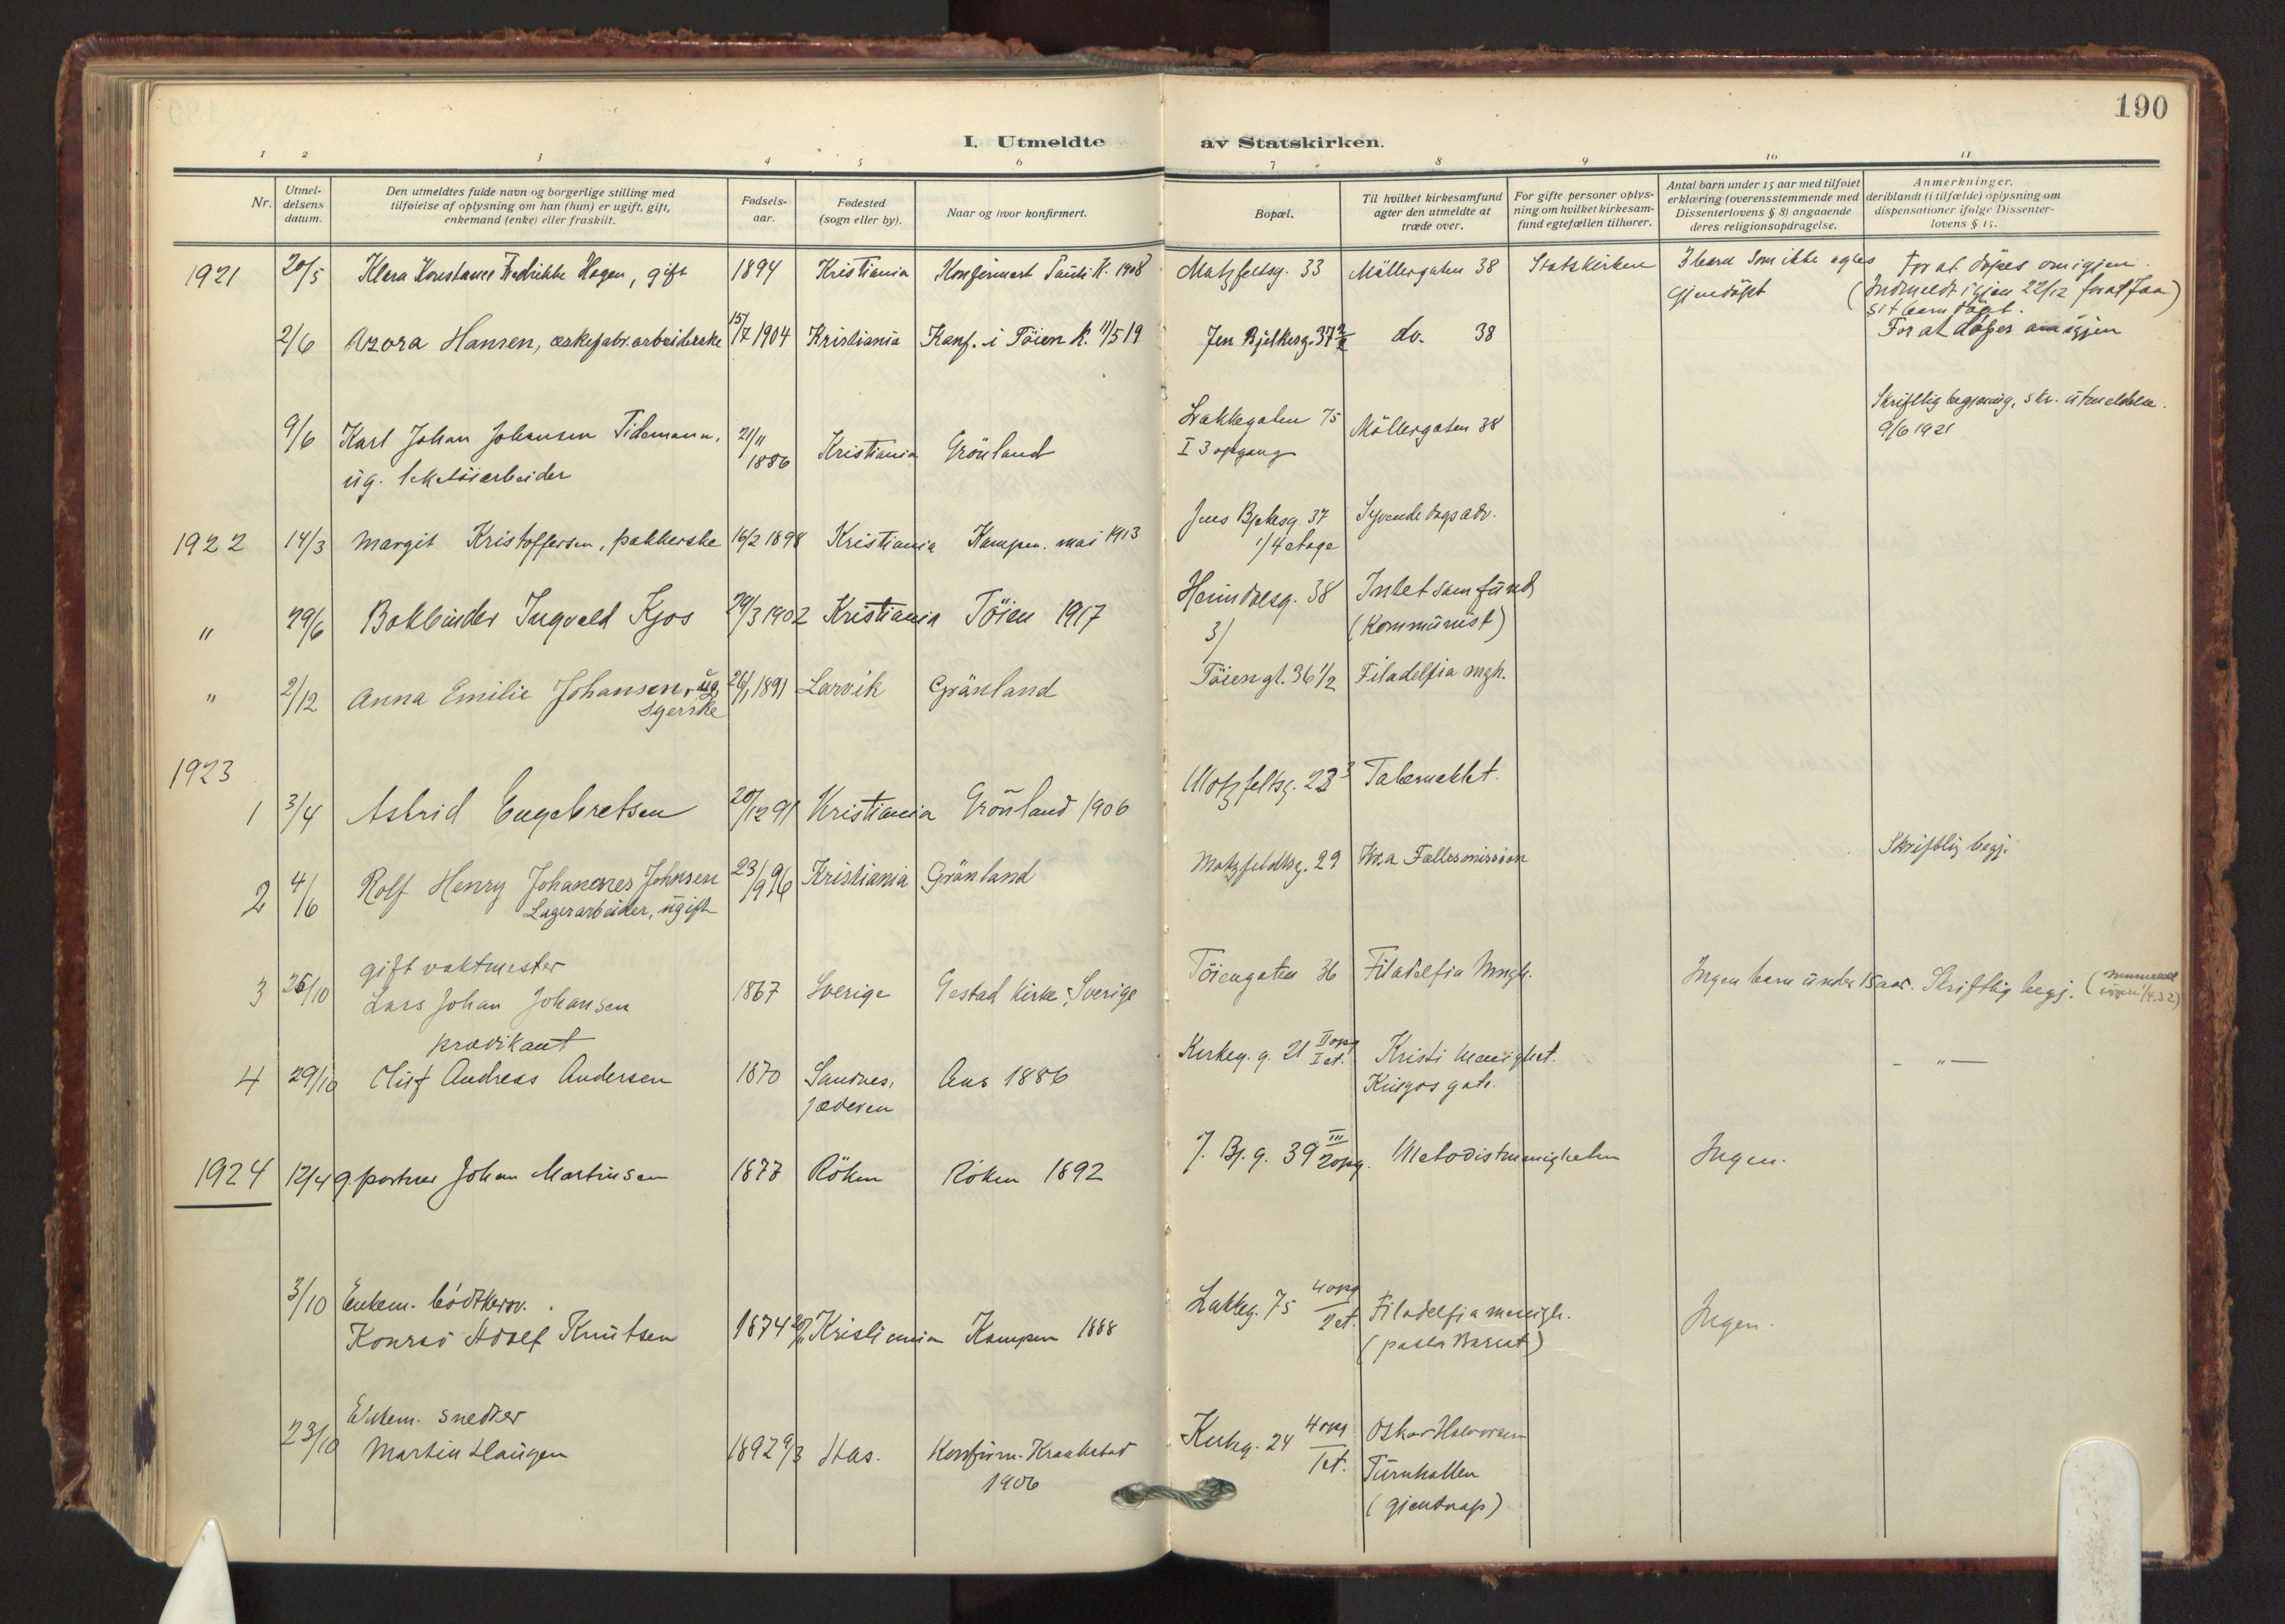 190
I. Utmeldte av Statskirken.
1 2 3 4 5 6 7 8 9 10 11
Nr.
Utmel-
delsens
datum.
Den utmeldtes fulde navn og borgerlige stilling med
tilføielse af oplysning om han (hun) er ugift, gift,
enkemand (enke) eller fraskilt.
Fødsels-
aar.
Fødested
(sogn eller by).
Naar og hvor konfirmert.
Bopæl.
Til hvilket kirkesamfund
agter den utmeldte at
træde over.
For gifte personer oplys-
ning om hvilket kirkesam-
fund egtefællen tilhører.
Antal barn under 15 aar med tilføiet
erklæring (overensstemmende med
Dissenterlovens § 8) angaaende
deres religionsopdragelse.
Anmerkninger,
deriblandt (i tilfælde) oplysning om
dispensationer ifølge Dissenter-
lovens § 15.
1921 20/5 Klara Konstance Fredrikke Hagen, gift 1894 Kristiania Konfirmert Pauli K. 1908 Motzfeltsg. 33 Möllergaten 38 Statskirken 3 barn som ikke agtes For at döpes om igjen.
gjendöpt (Indmeldt igjen 22/12 for at faa)
sit barn döpt.
2/6 Azora Hansen, æskefabr.arbeiderske 15/7 1904 Kristiania Konf. i Töien K. 1/5 19 Jen Bjelkesg. 37 do. 38 For at döpes om igjen
9/6 Karl Johan Johansen Tidemann, 21/11 1886 Kristiania Grönland Lakkegaten 75 Möllergaten 38 Skriftlig begjæring, skr. utmeldelse.
ug. leketöiarbeider I 3 opgang 9/6 1921
1922 14/3 Margit Kristoffersen, pakkerske 16/2 1898 Kristiania Kampen. mai 1913 Jens Bjelkesg. 37 Syvende dags adv.
1/4 etage
" 29/6 Bokbinder Ingvald Kjos 29/3 1902 Kristiania Töien 1917 Heimdalsg. 38 Intet samfund
3/ (Kommunist)
" 2/12 Anna Emilie Johansen, ug. 26/1 1891 Larvik Grönland Töieng t. 36 1/2 Filadelfia mgh.
syerske
1923
1 3/4 Astrid Engebretsen 20/12 91 Kristiania Grönland 1906 Motzfeltsg. 23 3 Tabernaklet.
2 4/6 Rolf Henry Johannes Johnsen 23/9 96 Kristiania Grönland Motzfeldtsg. 29 Kr.a Fællesmission Skriftlig begj.
Lagerarbeider, ugift
gift vaktmester
3 25/10 Lars Johan Johansen 1867 Sverige Gestad kirke, Sverige Töiengaten 36 Filadelfia Mngh. Ingen barn under 15 aar. Skriftlig begj.
prædikant
4 29/10 Olif Andreas Andersen 1870 Sandnes, Aas 1886 Kirkeg. g. 21 II opg I et. Kristi Menighet. - " -
Jæderen Kingos gate.
1924 12/4 g. portner Johan Martinsen 1877 Röken Röken 1892 J. Bj. g. 39 III 2 opg. Metodistmenigheten Ingen.
3/10 Enkem. bödkersv. Lakkeg. 75 4 opg 2 et. Filadelfia menigh. Ingen.
Konrad Adolf Knutsen 1874 Kristiania Kampen 1888 (pastor Barrat)
Enkem. snedker
23/10 Martin Haugen 1892 9/3 Aas. Konfirm. Kraakstad Kirkeg. 24 4 opg I et. Oskar Halvorsen
1906 Turnhallen
(gjendaap)